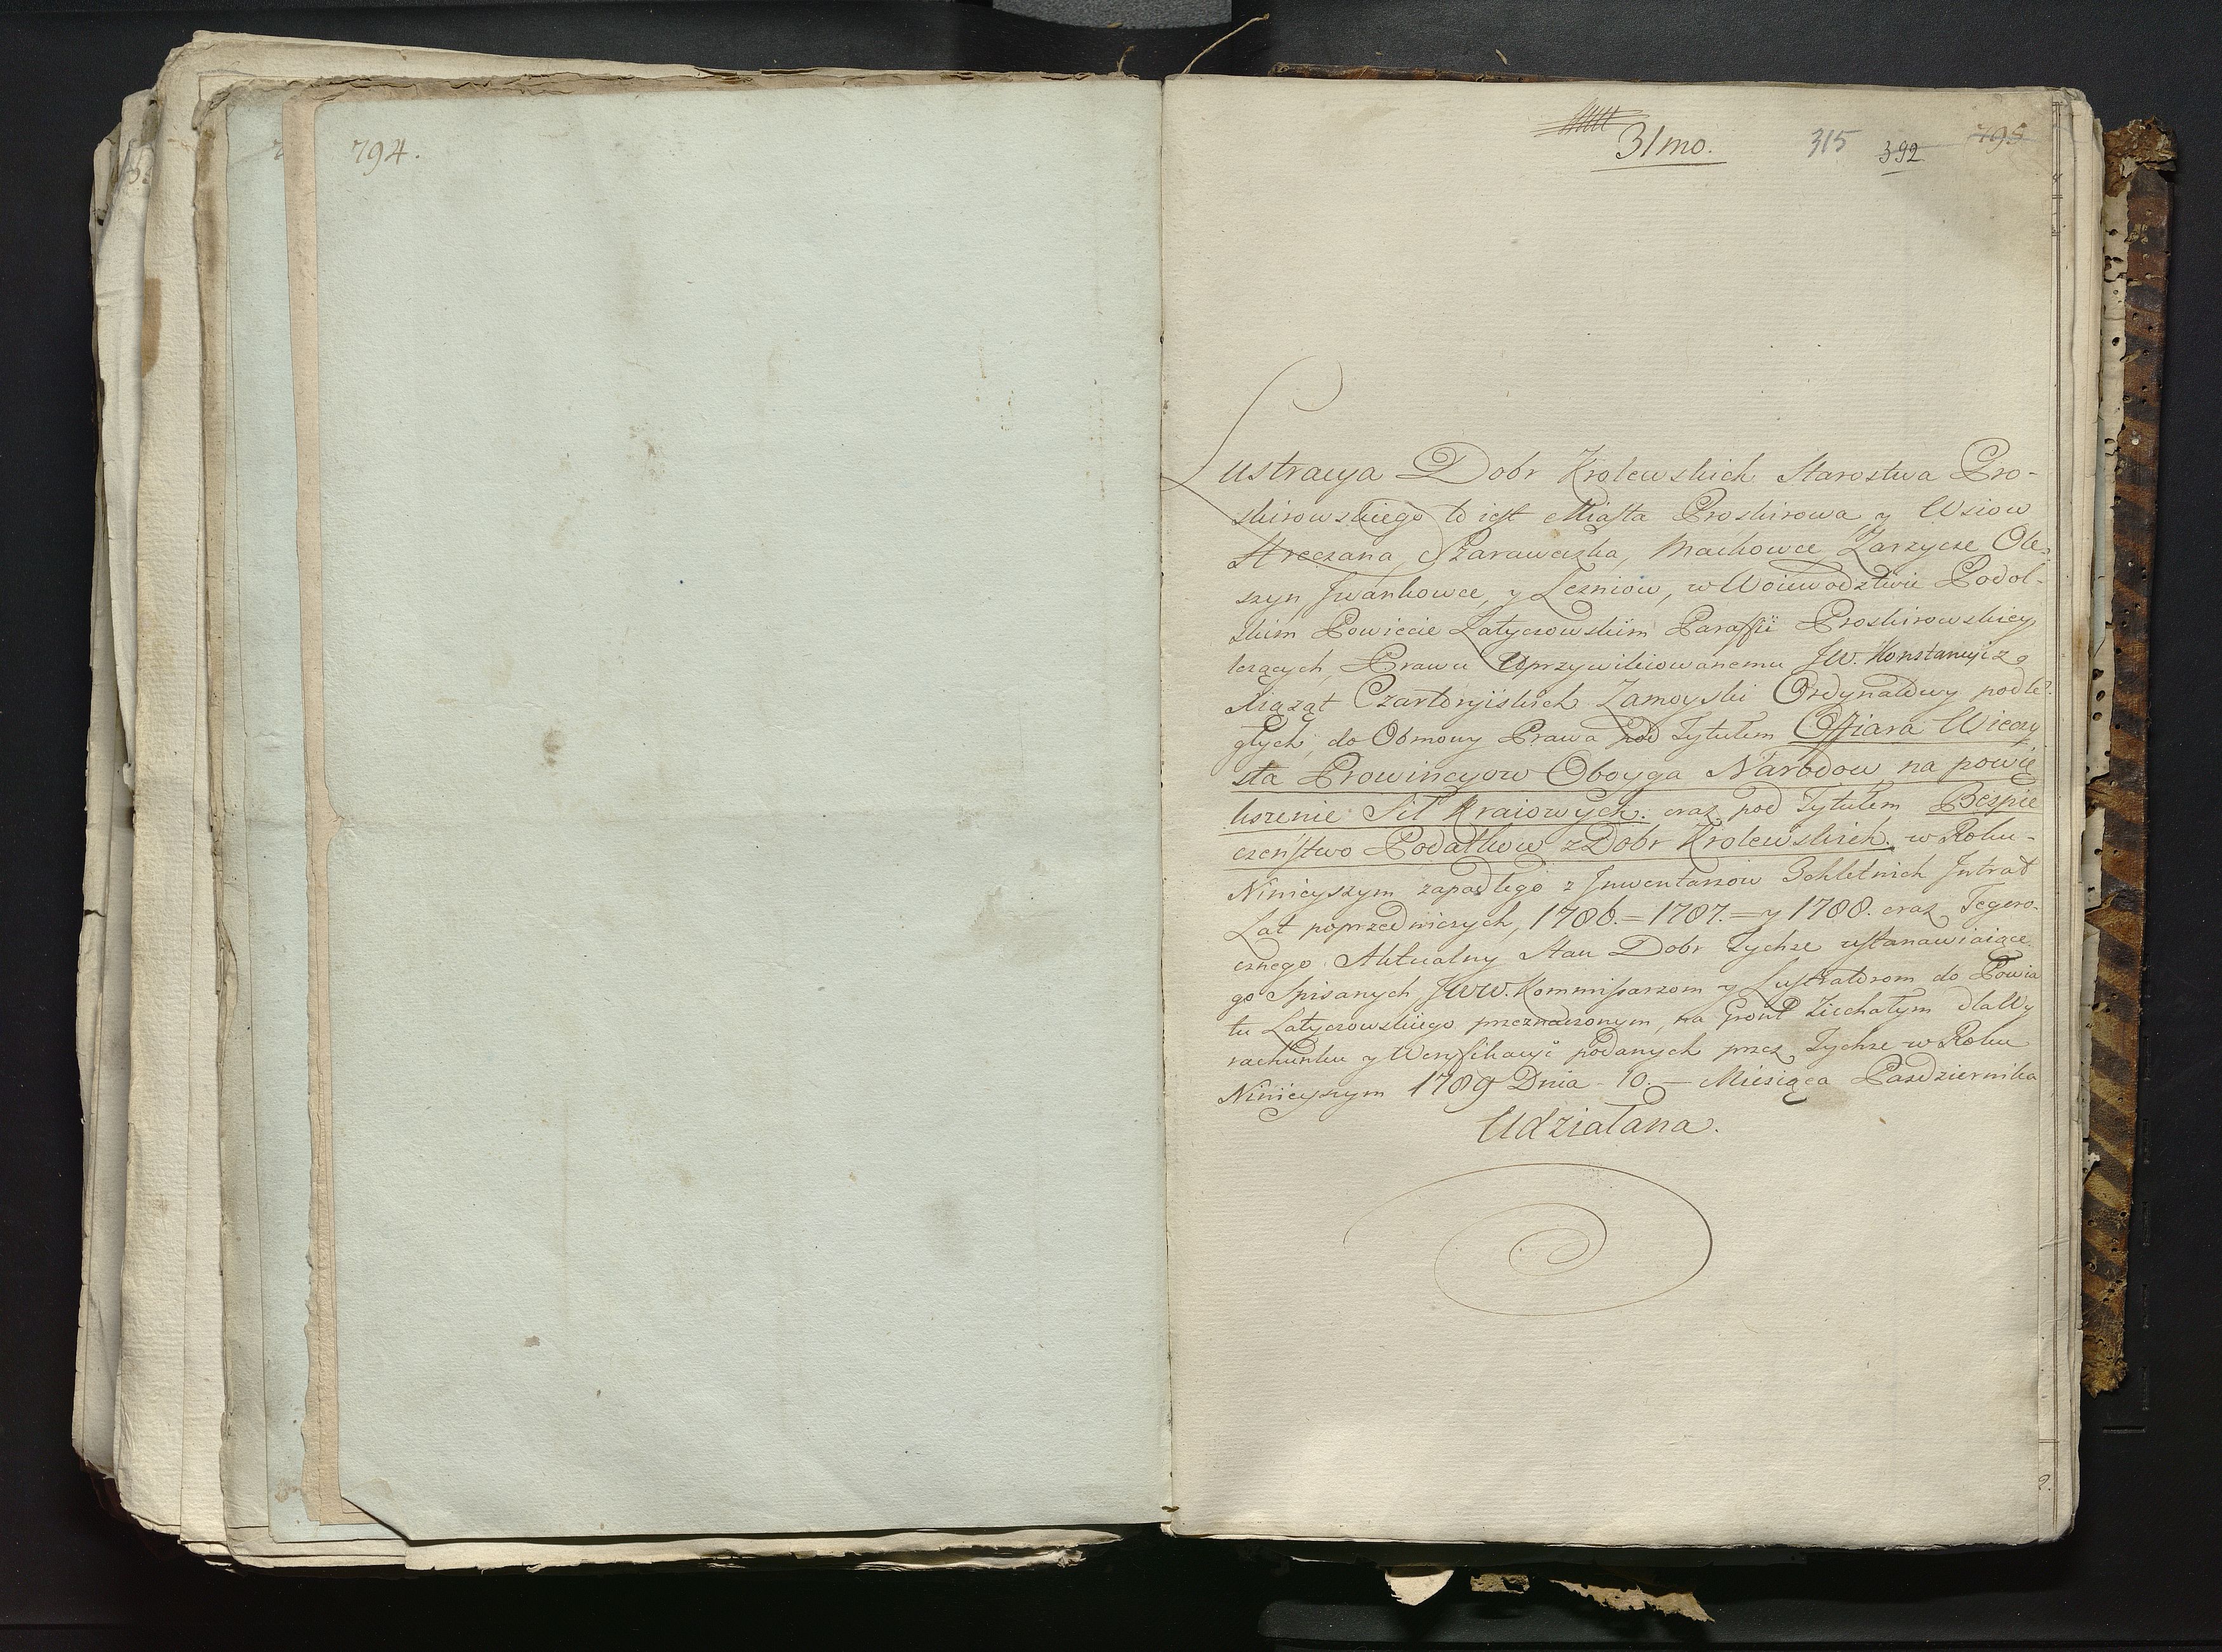 794.
31mo.
315
392
795
Lustracya Dobr Krolewskich Starostwa Pro-
skirowskiego to iest Miasta Proskirowa y Wsiow
Hreczana, Szaraweczka, Machowce Zarzycze Ole-
szyn Jwankowce, y Lezniow, w Woiewodztwie Podol-
skim Powiecie Latyczowskim Paraffii Proskirowskiey
leżących, Prawu Uprzywileiowanemu JW. Konstancyi z
Xiążąt Czartoryiskich Zamoyski Ordynatowy podle-
głych, do Obmowy Prawa pod Tytułem Offiara Wieczy
sta Prowincyow Oboyga Narodow na powię
kszenie Sił Kraiowych. oraz pod Tytułem Bespie
czeństwo Podatkow z Dobr Krolewskich. w Roku-
Ninieyszym zapadłego z Jnwentarzow 3chletnich Jntrat
Lat poprzedniczych, 1786.=1787.=y 1788. oraz Tegoro-
cznego Aktualny Stan Dobr tychże ustanawiaiące
go Spisanych JWW. Kommissarzom y Lustratorom do Powia
tu Latyczowskiego przeznaczonym, na Gront Ziechałym dla Wy
rachunku y Weryfikacyi podanych przez Tychże w Roku
Ninieyszym 1789 Dnia - 10. - Miesiąca Pazdziernika
Udziałana.